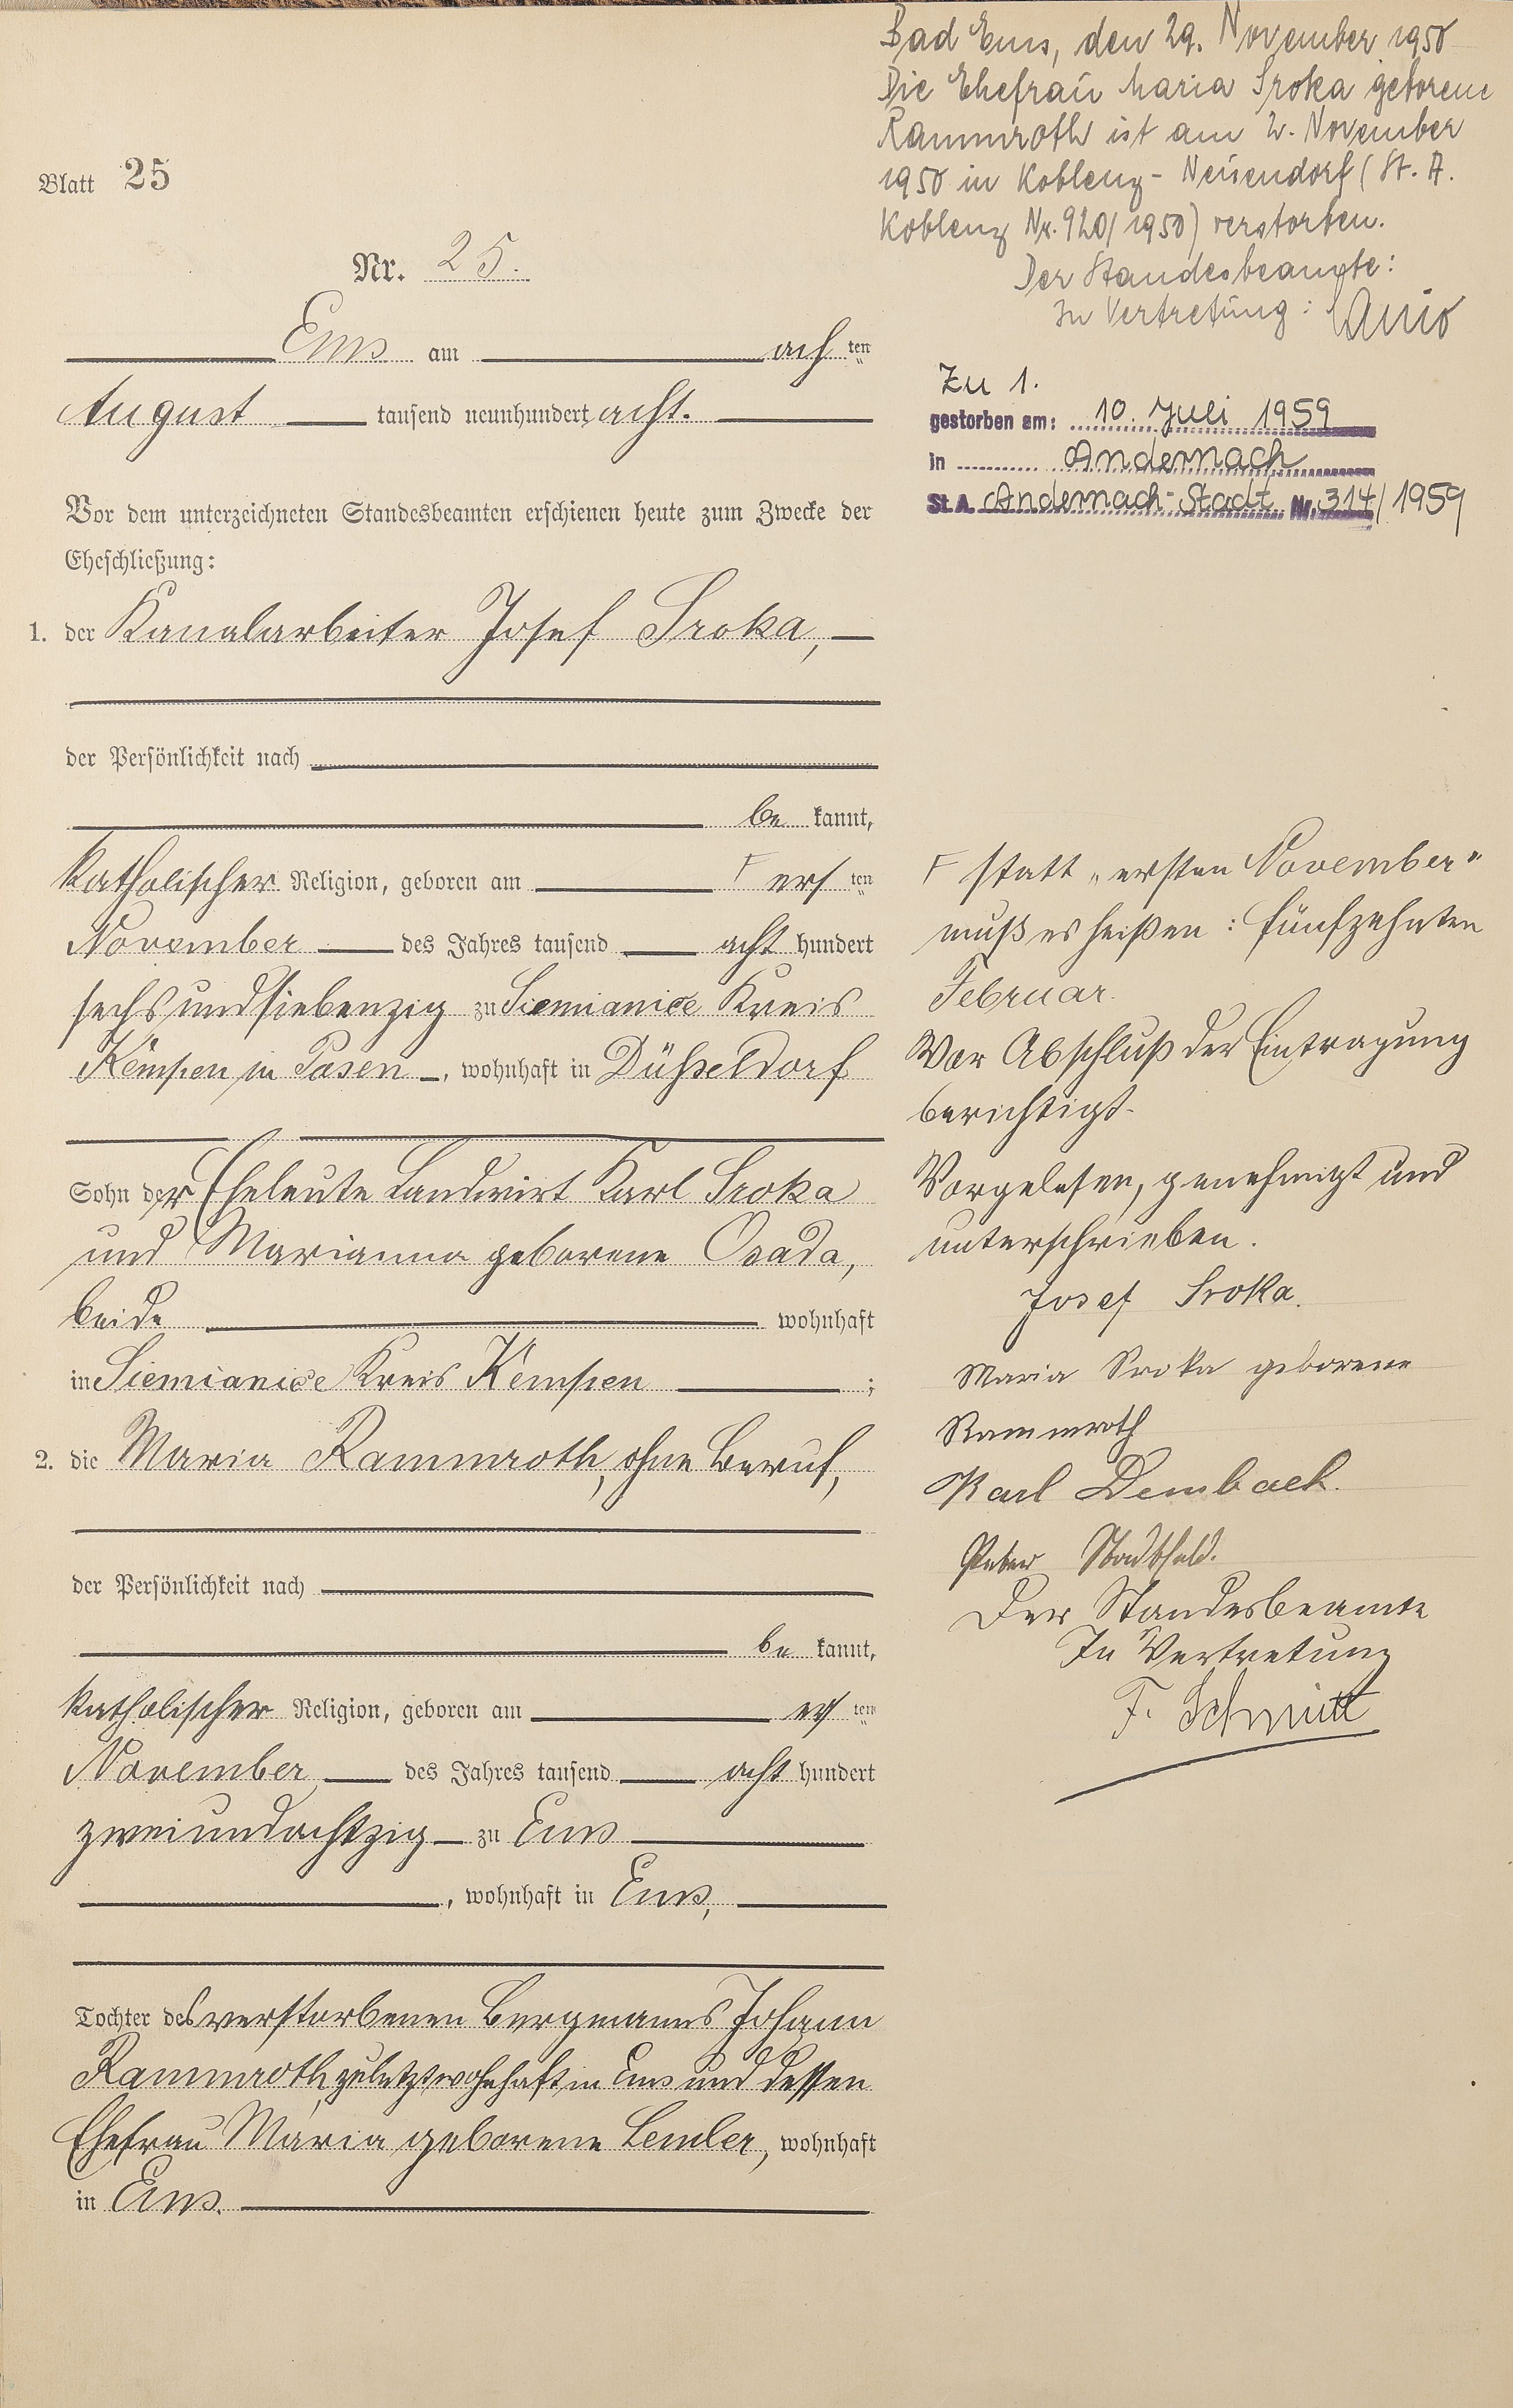 Blatt 25
Nr. 25.
Ems am achten
August tausend neunhundert acht.
Vor dem unterzeichneten Standesbeamten erschienen heute zum Zwecke der
Eheschließung:
1. der Kanalarbeiter Josef Sroka,
der Persönlichkeit nach
be kannt,
katholischer Religion, geboren am ⊢ ersten
November des Jahres tausend acht hundert
sechsundsiebenzig zu Siemianice Kreis
Kempen in Posen, wohnhaft in Düsseldorf
Sohn der Eheleute Landwirt Karl Sroka
und Marianna geborene Osada,
beide wohnhaft
in Siemianice Kreis Kempen ;
2. die Maria Rammroth, ohne Beruf,
der Persönlichkeit nach
be kannt,
katholischer Religion, geboren am ersten
November des Jahres tausend acht hundert
zweiundachtzig zu Ems
, wohnhaft in Ems,
Tochter des verstorbenen Bergmanns Johann
Rammroth, zuletzt wohnhaft in Ems und dessen
Ehefrau Maria geborene Lemler, wohnhaft
in Ems.
Bad Ems, den 29. November 1950
Die Ehefrau Maria Sroka geborene
Rammroth ist am 2. November
1950 in Koblenz-Neuendorf (St. A.
Koblenz Nr. 920/1950) verstorben.
Der Standesbeamte:
In Vertretung:
Zu 1.
gestorben am: 10. Juli 1959
in Andernach
St.A. Andernach-Stadt Nr. 314/1959
⊢ statt „ersten November"
muß es heißen: fünfzehnten
Februar.
Vor Abschluß der Eintragung
berichtigt.
Vorgelesen, genehmigt und
unterschrieben.
Josef Sroka.
Maria Sroka geborene
Rammroth
Karl Dembach.
Peter Stadtfeld.
Der Standesbeamte
In Vertretung
F. Schmitt